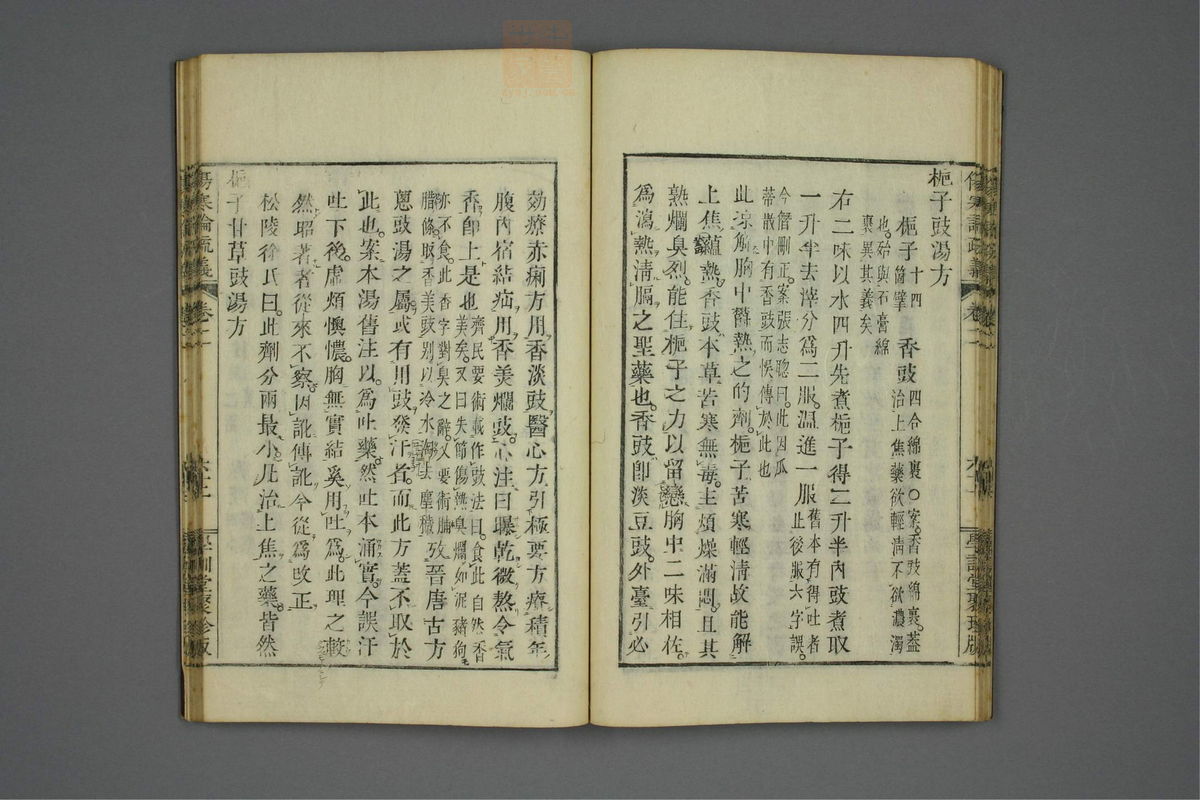 梔子豉湯方
梔子十四箇擘 香豉四合綿裹○案香豉綿裹蓋治上焦藥欲輕淸不欲濃濁
也殆與石膏綿裹異其義矣
右二味以水四升先煮梔子得二升半內豉煮取
一升半去滓分爲二服溫進一服舊本有得吐者止後服六字誤
今僭刪正案張志聰曰此因瓜蒂散中有香豉而悞傳於此也
此凉解胸中鬱熱之的劑梔子苦寒輕淸故能解
上焦蘊熱香豉本草苦寒無毒主煩燥滿悶且其
熟爛臭烈能佳梔子之力以留戀胸中二味相佐
爲瀉熱淸膈之聖藥也香豉卽淡豆豉外臺引必
効療赤痢方用香淡豉醫心方引極要方療積年
腹內宿結疝用香美爛豉心注曰曝乾微熬令氣
香卽上是也齊民要術載作豉法曰食此自然香美矣又曰失節傷熱臭爛如泥豬狗
亦不食此香字對臭之辭又要術腩炙臘條取香美豉别以冷水淘去塵穢攷晉唐古方
蔥豉湯之屬或有用豉發汗者而此方蓋不取於
此也案本湯舊注以爲吐藥然吐本涌實今誤汗
吐下後虛煩懊憹胸無實結奚用吐爲此理之較
然昭著者從來不察因訛傳訛今從爲改正
松陵徐氏曰此劑分兩最小凡治上焦之藥皆然
梔子甘草豉湯方
傷寒論疏義 卷二
學訓堂聚珍版